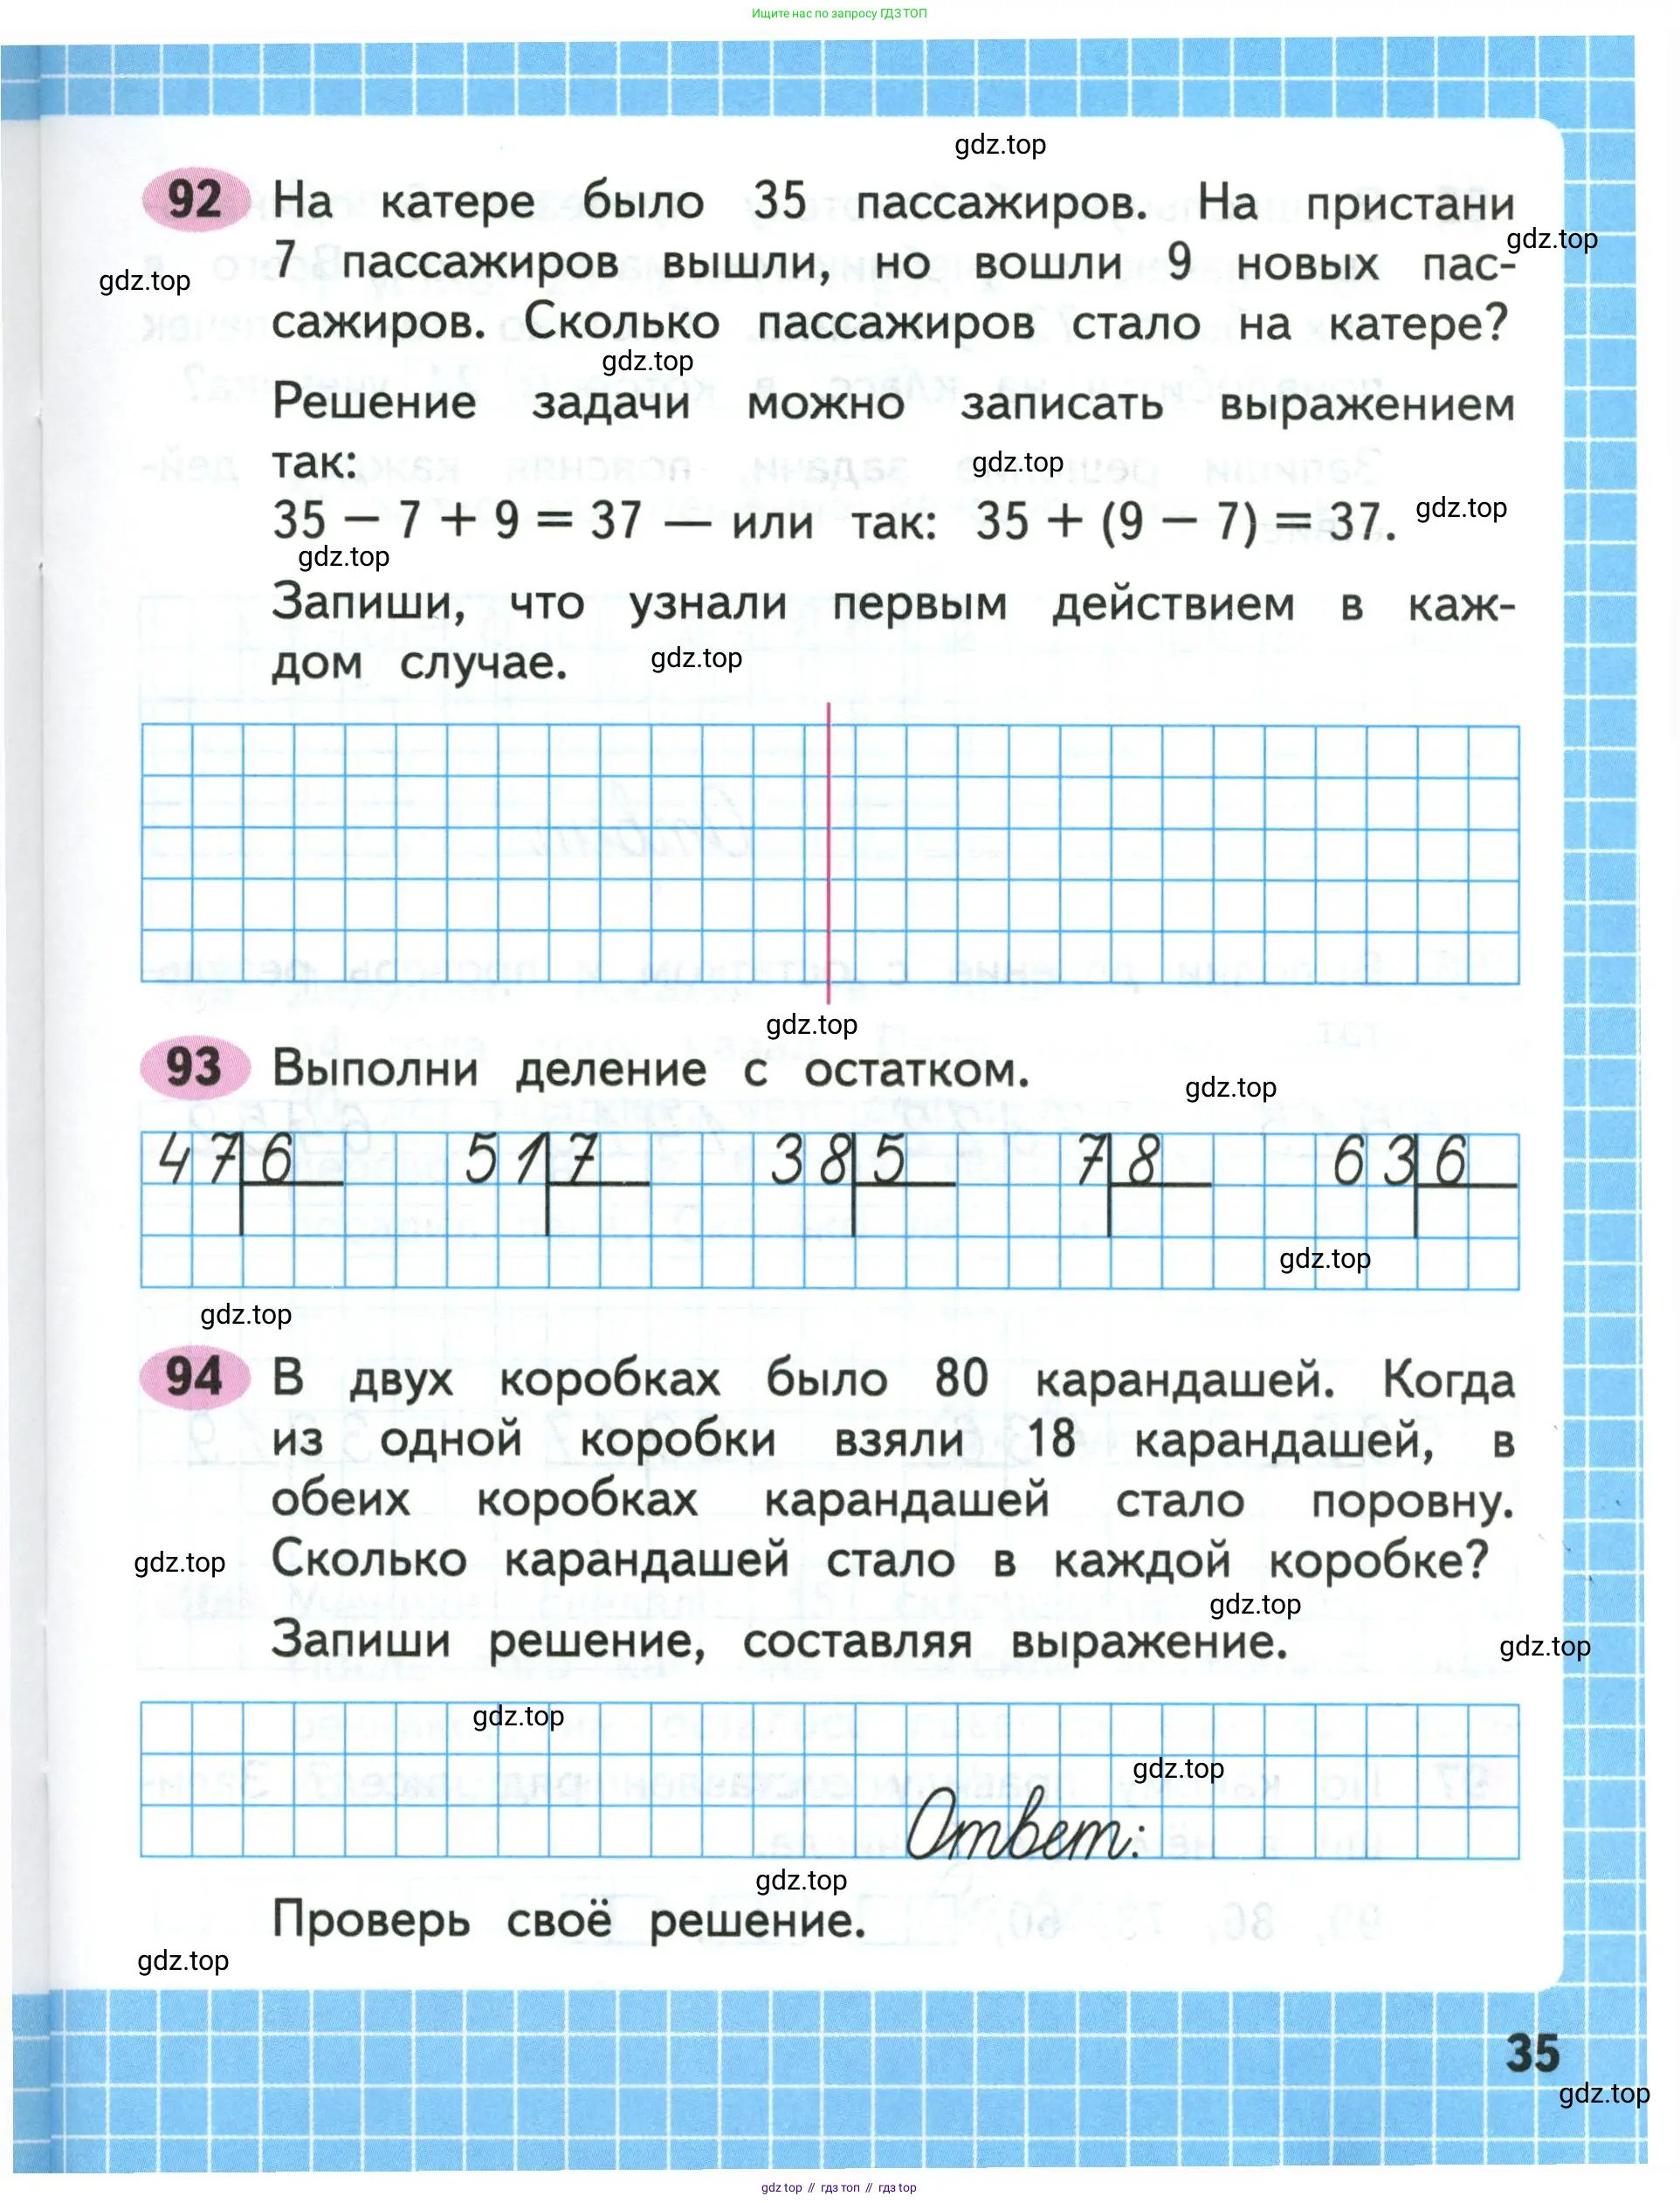 Ищите нас по запросу ГДЗ ТОП
gdz.top
92 На катере было 35 пассажиров. На пристани
gdz.top
7 пассажиров вышли, но вошли 9 новых пас-
gdz.top
сажиров. Сколько пассажиров стало на катере?
gdz.top
Решение задачи можно записать выражением
так:
gdz.top
35 − 7 + 9 = 37 — или так: 35 + (9 − 7) = 37.
gdz.top
gdz.top
Запиши, что узнали первым действием в каж-
дом случае.
gdz.top
gdz.top
93 Выполни деление с остатком.
gdz.top
47 6 51 7 38 5 7 8 63 6
gdz.top
gdz.top
94 В двух коробках было 80 карандашей. Когда
из одной коробки взяли 18 карандашей, в
обеих коробках карандашей стало поровну.
Сколько карандашей стало в каждой коробке?
gdz.top
gdz.top
Запиши решение, составляя выражение.
gdz.top
gdz.top
gdz.top
Ответ:
gdz.top
Проверь своё решение.
gdz.top
35
gdz.top
gdz top // гдз топ // гдз top